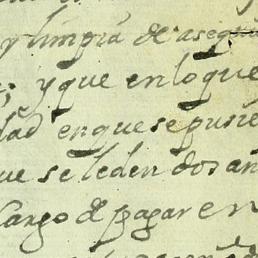 y limpia de asegu
; y que en loque
dad en que se pusie
ue se le den dos an
Cargo de pagar en